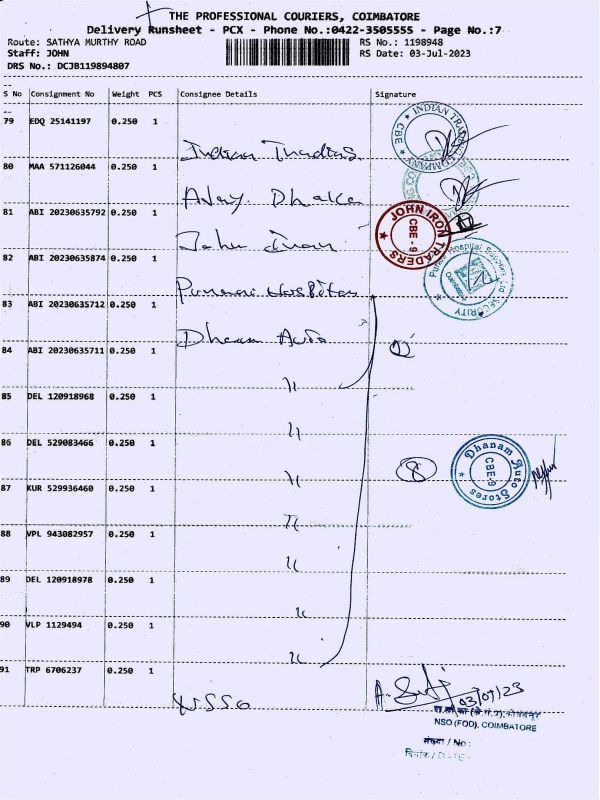 THE PROFESSIONAL COURIERS, COIMBATORE
Delivery Runsheet - PCX - Phone No.:0422-3505555 - Page No.:7
Route: SATHYA MURTHY ROAD
RS No.: 1198948
Staff: JOHN
RS Date: 03-Jul-2023
DRS No.: DCJB119894807
S No Consignment No Weight PCS Consignee Details Signature
79 EDQ 25141197 0.250 1
Indian Tradias
INDIAN TRADING COMPANY CBE
80 MAA 571126044 0.250 1
Ajay Dhaka
81 ABI 20230635792 0.250 1
John Iran
JOHN IRON TRADERS CBE - 9
82 ABI 20230635874 0.250 1
Hospital
SECURITY
83 ABI 20230635712 0.250 1
Dhanam Auto
84 ABI 20230635711 0.250 1
"
85 DEL 120918968 0.250 1
"
86 DEL 529083466 0.250 1
"
8
Dhanam Auto Stores CBE-9
87 KUR 529936460 0.250 1
"
88 VPL 943082957 0.250 1
"
89 DEL 120918978 0.250 1
"
90 VLP 1129494 0.250 1
"
91 TRP 6706237 0.250 1
NSSO
03/07/23
NSO (FOD), COIMBATORE
संख्या / No :
दिनांक / DATE